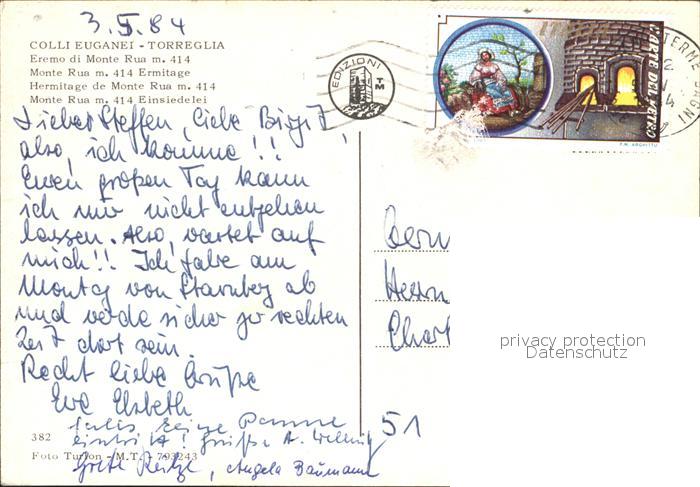 3.5.84
COLLI EUGANEI - TORREGLIA
Eremo di Monte Rua m. 414
Monte Rua m. 414 Ermitage
Hermitage de Monte Rua m. 414
Monte Rua m. 414 Einsiedelei
EDIZIONI TM
L'ARTE DEL VETRO
TERME
Lieber Steffen, liebe Birgit,
also, ich komme!!
Euren großen Tag kann
ich mir nicht entgehen
lassen. Also, wartet auf
mich!! Ich fahre am
Montag von Starnberg ab
und werde sicher zur rechten
Zeit dort sein.
Recht liebe Grüße
Eure Elsbeth
falls keine Panne
eintritt! Grüße A.
Grete, Angela Baumann
Herrn
51
privacy protection
Datenschutz
382
Foto Turlon - M.T. - 793243